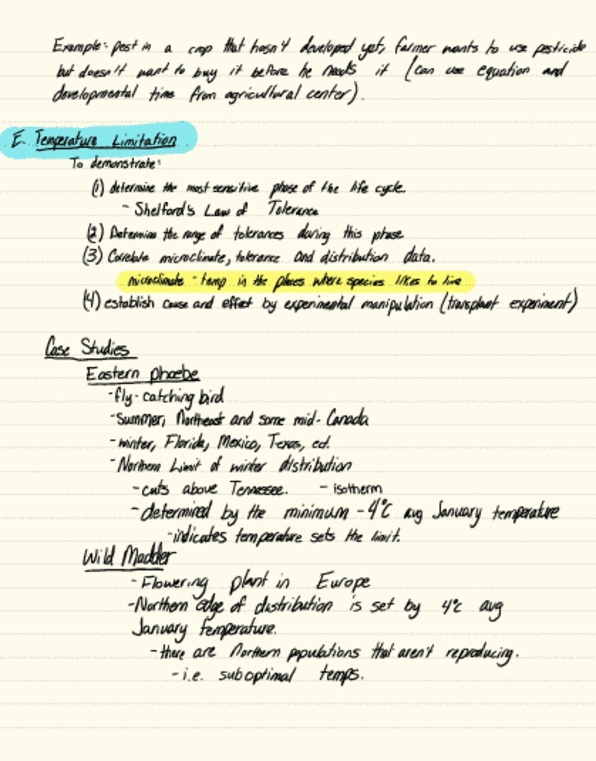 Example: pest in a crop that hasn't developed yet, farmer wants to use pesticide
but doesn't want to buy it before he needs it (can use equation and
developmental time from agricultural center).
E. Temperature Limitation
To demonstrate:
(1) determine the most sensitive phase of the life cycle.
- Shelford's Law of Tolerance
(2) Determine the range of tolerances during this phase
(3) Correlate microclimate, tolerance and distribution data.
microclimate - temp in the places where species likes to live
(4) establish cause and effect by experimental manipulation (transplant experiment)
Case Studies
Eastern phoebe
- fly-catching bird
- Summer, Northeast and some mid-Canada
- winter, Florida, Mexico, Texas, ect.
- Northern Limit of winter distribution
- cuts above Tennessee. - isotherm
- determined by the minimum -4°C avg January temperature
- indicates temperature sets the limit.
Wild Madder
- Flowering plant in Europe
- Northern edge of distribution is set by 4°C avg
January temperature.
- there are Northern populations that aren't reproducing.
- i.e. suboptimal temps.